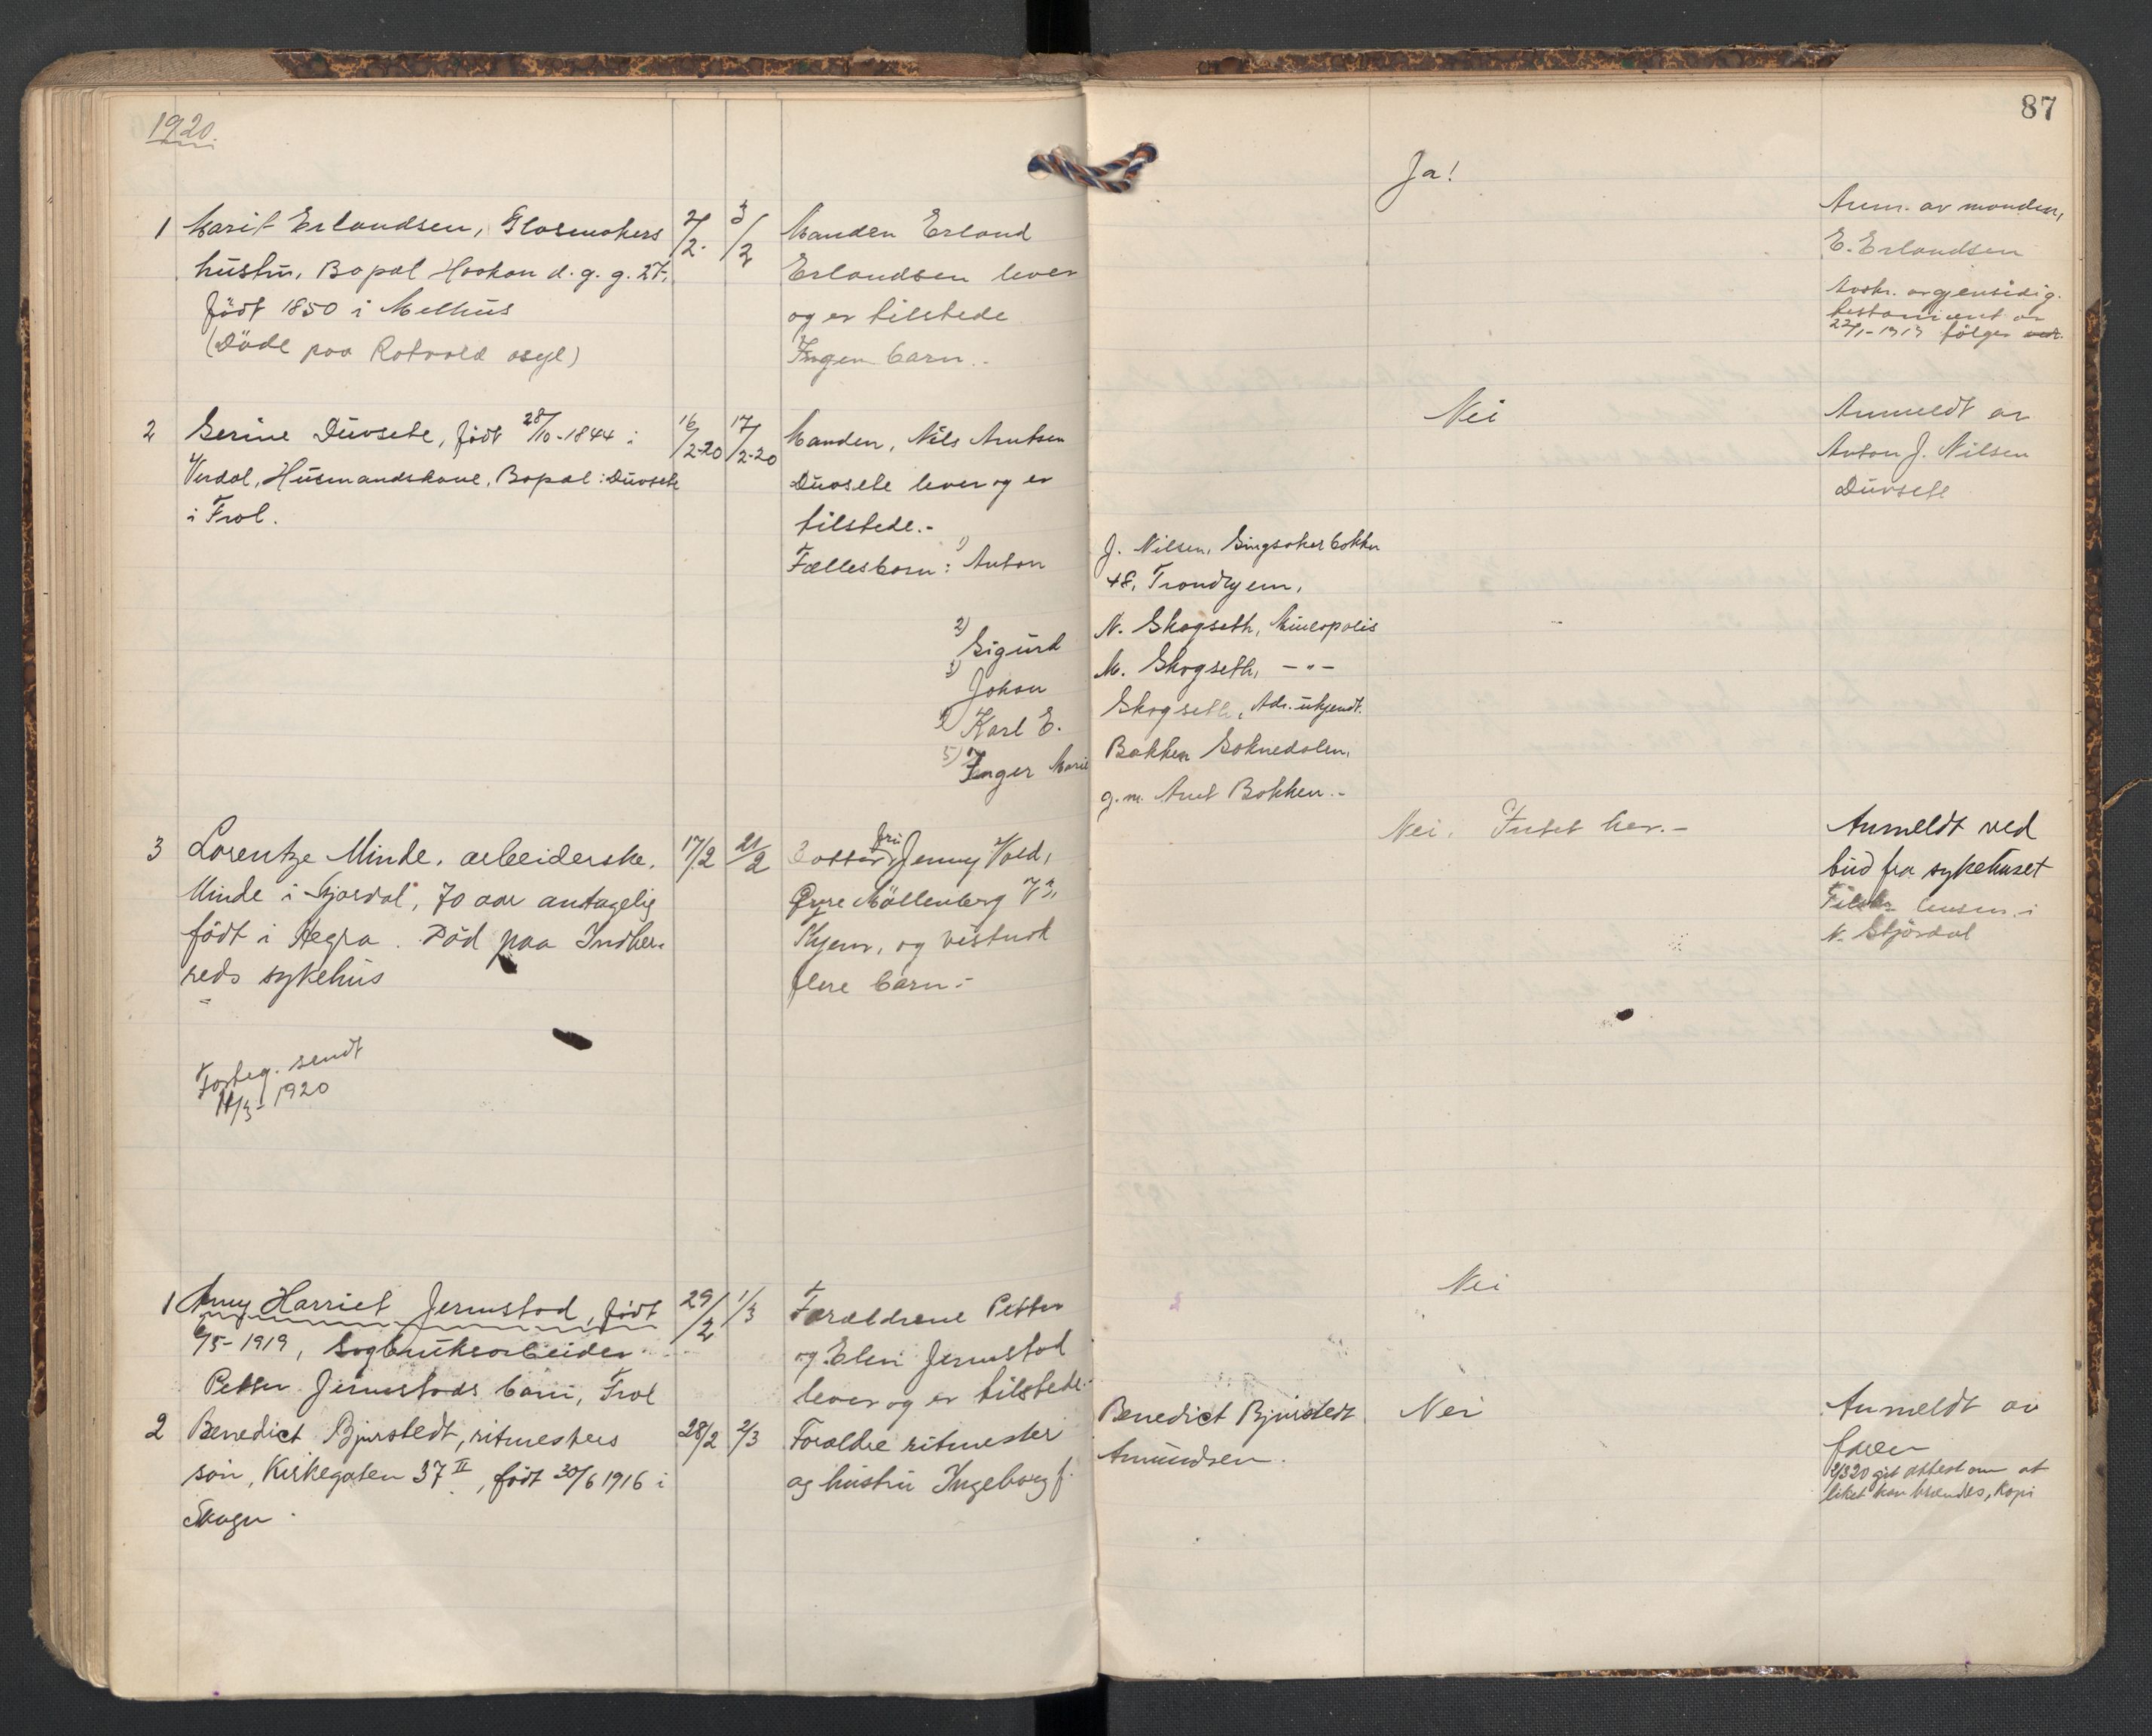 1920.
87
1 Marit Erlandsen, Glasmakers 2/2. 3/2 Manden Erland
hustru, Bopæl Haakon d. g. g. 27,
Erlandsen lever
født 1850 i Melhus
og er tilstede
(Döde paa Rotvold asyl)
Ingen barn.-
Ja!
Anm. av manden,
E. Erlandsen
Avskr. av gjensidig.
testament av
22/1-1913 følger
2 Serine Duvsete, født 28/10-1844 i 16/2-20 17/2-20 Manden, Nils Arntsen
Verdal, Husmandskone, Bopæl: Duvsete
Duvsete lever og er
i Frol.
tilstede.-
Fællesbarn: 1) Anton J. Nilsen, Singsakerbakken
48, Trondhjem,
2) Sigurd N. Skogseth, Mineapolis
3) Johan M. Skogseth, -"-
4) Karl E. Skogseth, Adr. ukjendt.
5) Inger Marie Bakken Soknedalen,
g.m. Arnt Bakken.-
Nei
Anmeldt av
Anton J. Nilsen
Duvsete
3 Lorentze Minde, arbeiderske, 17/2 21/2 Datter, fru Jenny Vold,
Minde i Stjørdal, 70 aar antagelig
Øvre Møllenberg
født i Hegra. Död paa Indher-
Thjem, og vistnok
reds sykehus
flere barn.-
Nei, Intet her.-
Anmeldt ved
bud fra sykehuset
Tilskr. lensm. i
N. Stjørdal
Forteg. sendt
11/3-1920
1 Anny Harriet Jermstad, født 29/2 1/3 Forældrene Petter
6/5-1919, Sagbruksarbeider
og Elen Jermstad
Petter Jermstads barn, Frol
lever og er tilstede.-
Nei
2 Benedict Bjurstedt, ritmesters 28/2 2/3 Forældre ritmester Benedict Bjurstedt
søn, Kirkegaten 37 II, født 30/6 1916 i
og hustru Ingeborg f. Amundsen.
Skogn.
Nei
Anmeldt av
faren
2/3 20 git attest om at
liket kan brændes, kopi